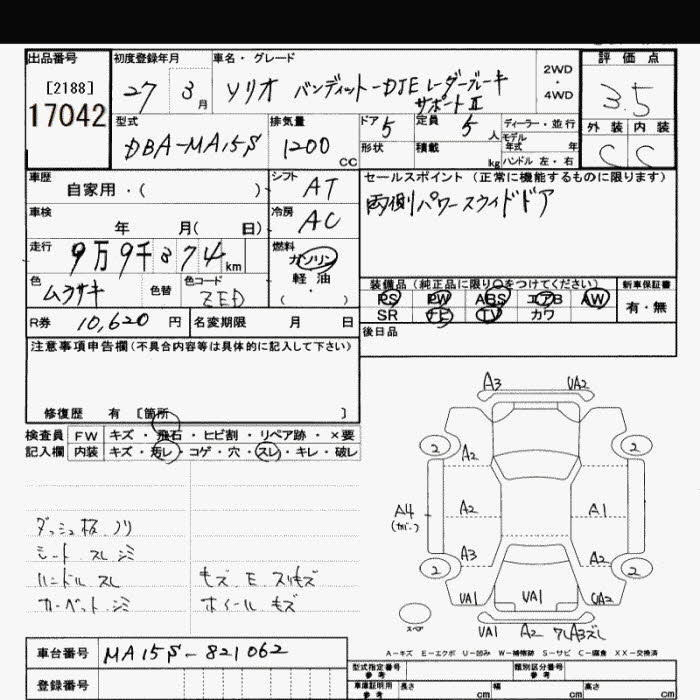 出品番号 初度登録年月 車名・グレード 評価点
[2188] 27 3月 ソリオ バンディット-DJE レーダーブレーキ 2WD・4WD 3.5
17042 サポートⅡ
型式 排気量 ドア 5 定員 5人 ディーラー・並行 外装 内装
DBA-MA15S 1200 CC 形状 積載 kg モデル年式 年 C C
ハンドル 左・右
車歴 シフト セールスポイント(正常に機能するものに限ります)
自家用・( ) AT 両側パワースライドドア
車検 冷房
年 月( 日) AC
走行 燃料
9万9千874km ガソリン
色 色替 色コード 軽油 装備品(純正品に限り○をつけてください) 新車保証書
ムラサキ ZED ・( ) PS PW ABS エアB AW 有・無
SR ナビ TV カワ
R券 10,620円 名変期限 月 日 後日品
注意事項申告欄(不具合内容等は具体的に記入して下さい)
修復歴 有 [箇所 ]
検査員 FW キズ・飛石・ヒビ割・リペア跡・×要
記入欄 内装 キズ・汚レ・コゲ・穴・スレ・キレ・破レ
ダッシュ板 ノリ
シート スレ シミ
ハンドル スレ モズ E スリキズ
カーペット シミ ホイール キズ
A3 UA2
2 2
A2
A4 A2 A1
(カバー)
A3 A2
2 2
UA1 UA1 UA2
スペア
UA1 A2
A-キズ E-エクボ U-凹み W-補修跡 S-サビ C-腐食 XX-交換済
車台番号 MA15S-821062
登録番号
型式指定番号 参考 類別区分番号 参考
車庫証明用 参考 長さ cm 幅 cm 高さ cm